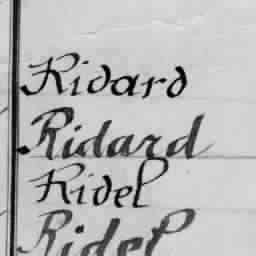 Ridard
Ridard
Ridel
Ridel